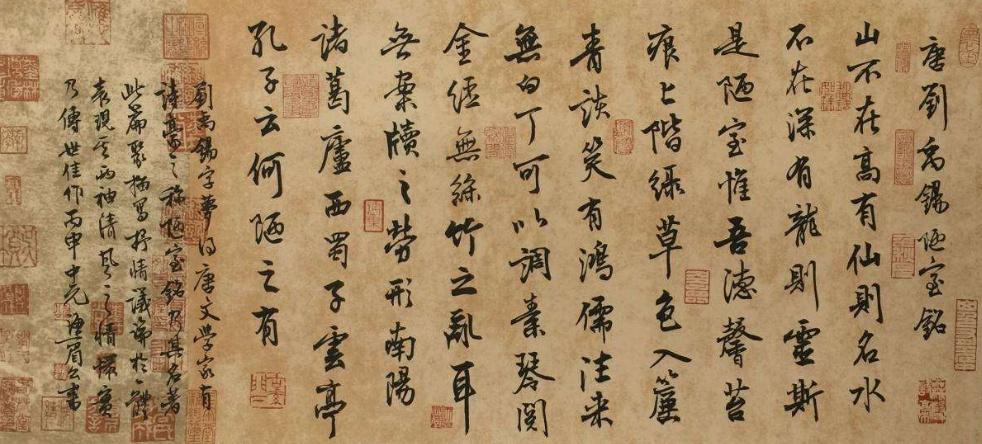 唐劉禹錫陋室銘
山不在高有仙則名水
不在深有龍則靈斯
是陋室惟吾德馨苔
痕上階綠草色入簾
青談笑有鴻儒往來
無白丁可以調素琴閱
金經無絲竹之亂耳
無案牘之勞形南陽
諸葛廬西蜀子雲亭
孔子云何陋之有
劉禹錫字夢得唐文學家有
詩豪之稱陋室銘乃其名著
此篇聚描寫抒情議論於一體
表現其兩袖清風之情懷實
乃傳世佳作丙申中元